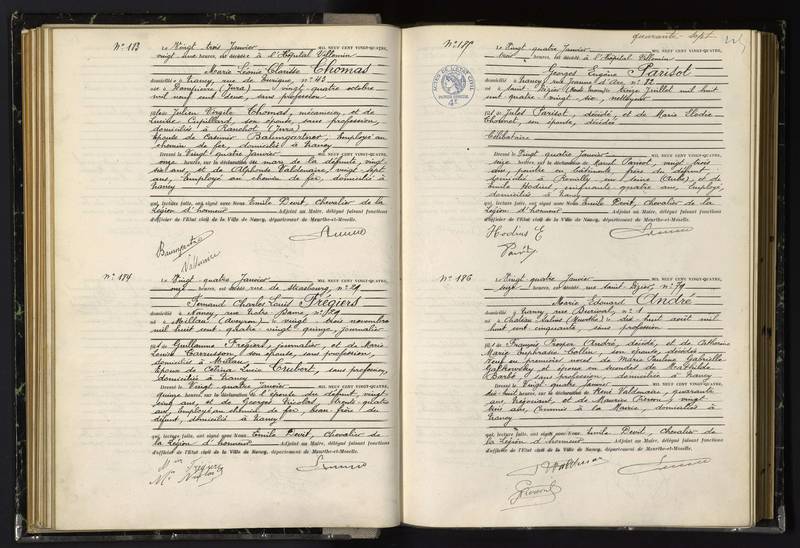 N° 183
Le Vingt trois Janvier MIL NEUF CENT VINGT-QUATRE,
vingt une heures, est décédée à l'Hôpital Villemin
Marie Léonie Clarisse Thomas
domiciliée à Nancy, rue de n° 43
née à Dampierre (Jura) vingt quatre octobre
mil neuf cent deux, sans profession
fille de Julien Virgile Thomas, mécanicien, et de
Louise Cupillard, son épouse, sans profession,
domiciliés à Ranchot (Jura)
Epouse de Casimir Baumgartner, Employé au
chemin de fer, domicilié à Nancy
Dressé le Vingt quatre Janvier
onze heures, sur la déclaration du mari de la défunte, vingt
ans, et de Alphonse Valdenaire, vingt sept
ans, Employé au chemin de fer, domicilié à
Nancy
qui, lecture faite, ont signé avec Nous Emile Devit, Chevalier de la
Légion d'honneur Adjoint au Maire, délégué faisant fonctions
d'officier de l'Etat civil de la Ville de Nancy, département de Meurthe-et-Moselle.
N° 184
Le Vingt quatre Janvier MIL NEUF CENT VINGT-QUATRE,
heures, est décédé rue de Strasbourg, n° 29
Fernand Charles Louis Frégiers
domicilié à Nancy, rue Notre Dame, n° 129
né à Millau (Aveyron) le vingt trois novembre
mil huit cent quatre vingt quinze, journalier
fils de Guillaume Frégiers, journalier, et de Marie
Louise Carrusson, son épouse, sans profession,
domiciliés à Millau
Epoux de Lucie sans profession,
domiciliée à Nancy
Dressé le Vingt quatre Janvier
Quinze heures, sur la déclaration de l'épouse du défunt, vingt
ans, et de Georges Nicolas, trente quatre
ans, Employé au chemin de fer, beau frère du
défunt, domicilié à Nancy
qui, lecture faite, ont signé avec Nous Emile Devit, Chevalier de
la Légion d'honneur Adjoint au Maire, délégué faisant fonctions
d'officier de l'Etat civil de la Ville de Nancy, département de Meurthe-et-Moselle.
quarante sept
N° 185
Le Vingt quatre Janvier MIL NEUF CENT VINGT-QUATRE,
heures, est décédé à l'Hôpital Villemin
Georges Eugène Parisot
domicilié à Nancy, rue Jeanne d'Arc, n° 32
né à Saint Dizier (Haute Marne) le seize Juillet mil huit
cent quatre vingt six, nettoyeur
fils de Jules Parisot, décédé, et de Marie Elodie
son épouse, décédée
Célibataire
Dressé le Vingt quatre Janvier
heures, sur la déclaration de Marcel Parisot, vingt trois
ans, peintre en bâtiments, frère du défunt
domicilié à Romilly sur Seine (Aube), et de
Emile Hodius, cinquante quatre ans, Employé,
domicilié à Nancy
qui, lecture faite, ont signé avec Nous Emile Devit, Chevalier de la
Légion d'honneur Adjoint au Maire, délégué faisant fonctions
d'officier de l'Etat civil de la Ville de Nancy, département de Meurthe-et-Moselle.
Hodius E
N° 186
Le Vingt quatre Janvier MIL NEUF CENT VINGT-QUATRE,
heures, est décédé rue Saint Dizier, n° 79
Marie Edouard André
domicilié à Nancy, rue n° 1
né à Château Salins (Moselle) le dix huit août mil
huit cent cinquante, sans profession
fils de François Prosper André, décédé, et de Catherine
Marie Euphrasie Collin, son épouse, décédée
Veuf en premières noces de Marie Pauline Gabrielle
et époux en secondes de Mathilde
Barbé, sans profession, domiciliée à Nancy
Dressé le Vingt quatre Janvier
dix huit heures, sur la déclaration de René Vallenaire, quarante
ans, Négociant, et de Maurice vingt
trois ans, Commis à la Mairie, domiciliés à
Nancy
qui, lecture faite, ont signé avec Nous Emile Devit, Chevalier de
la Légion d'honneur Adjoint au Maire, délégué faisant fonctions
d'officier de l'Etat civil de la Ville de Nancy, département de Meurthe-et-Moselle.